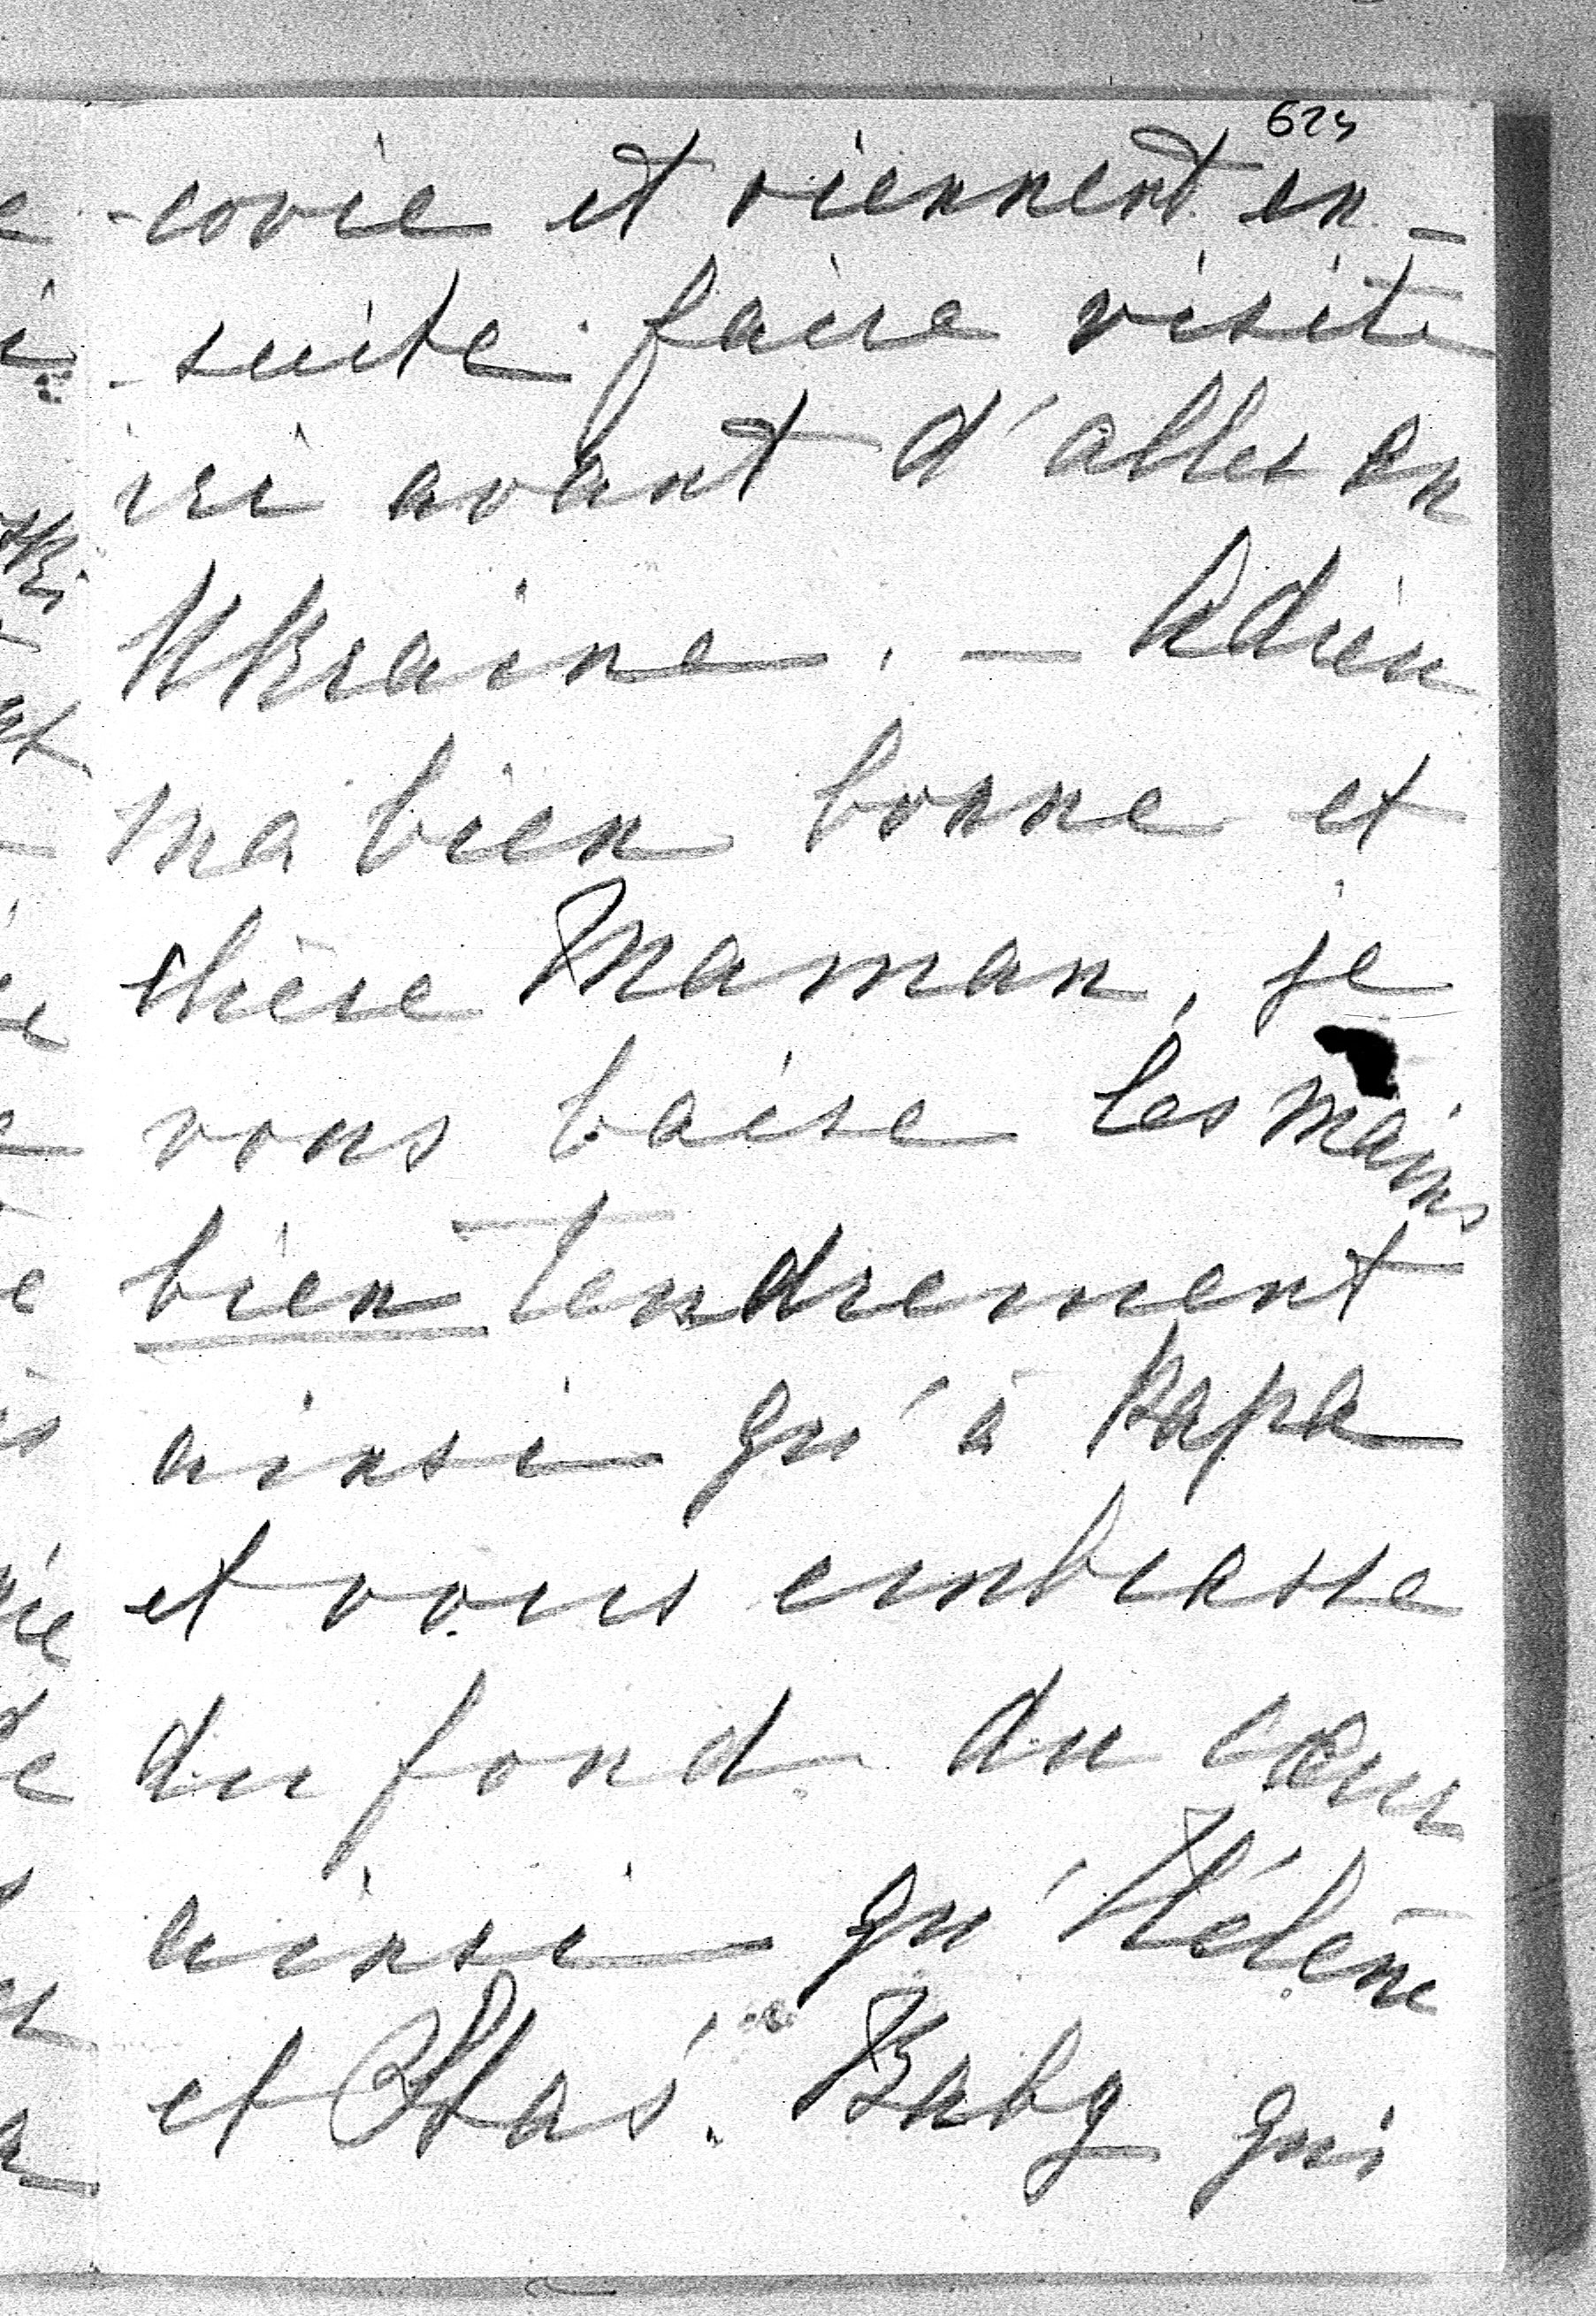 623
-covie et viennent en-
-suite faire visite
ici avant d'aller en
Ukraine. — Adieu
ma bien bonne et
chère Maman, je
vous baise les mains
bien tendrement
ainsi qu'à Papa
et vous embrasse
du fond du cœur
ainsi qu'Hélène
et Staś. Baby qui